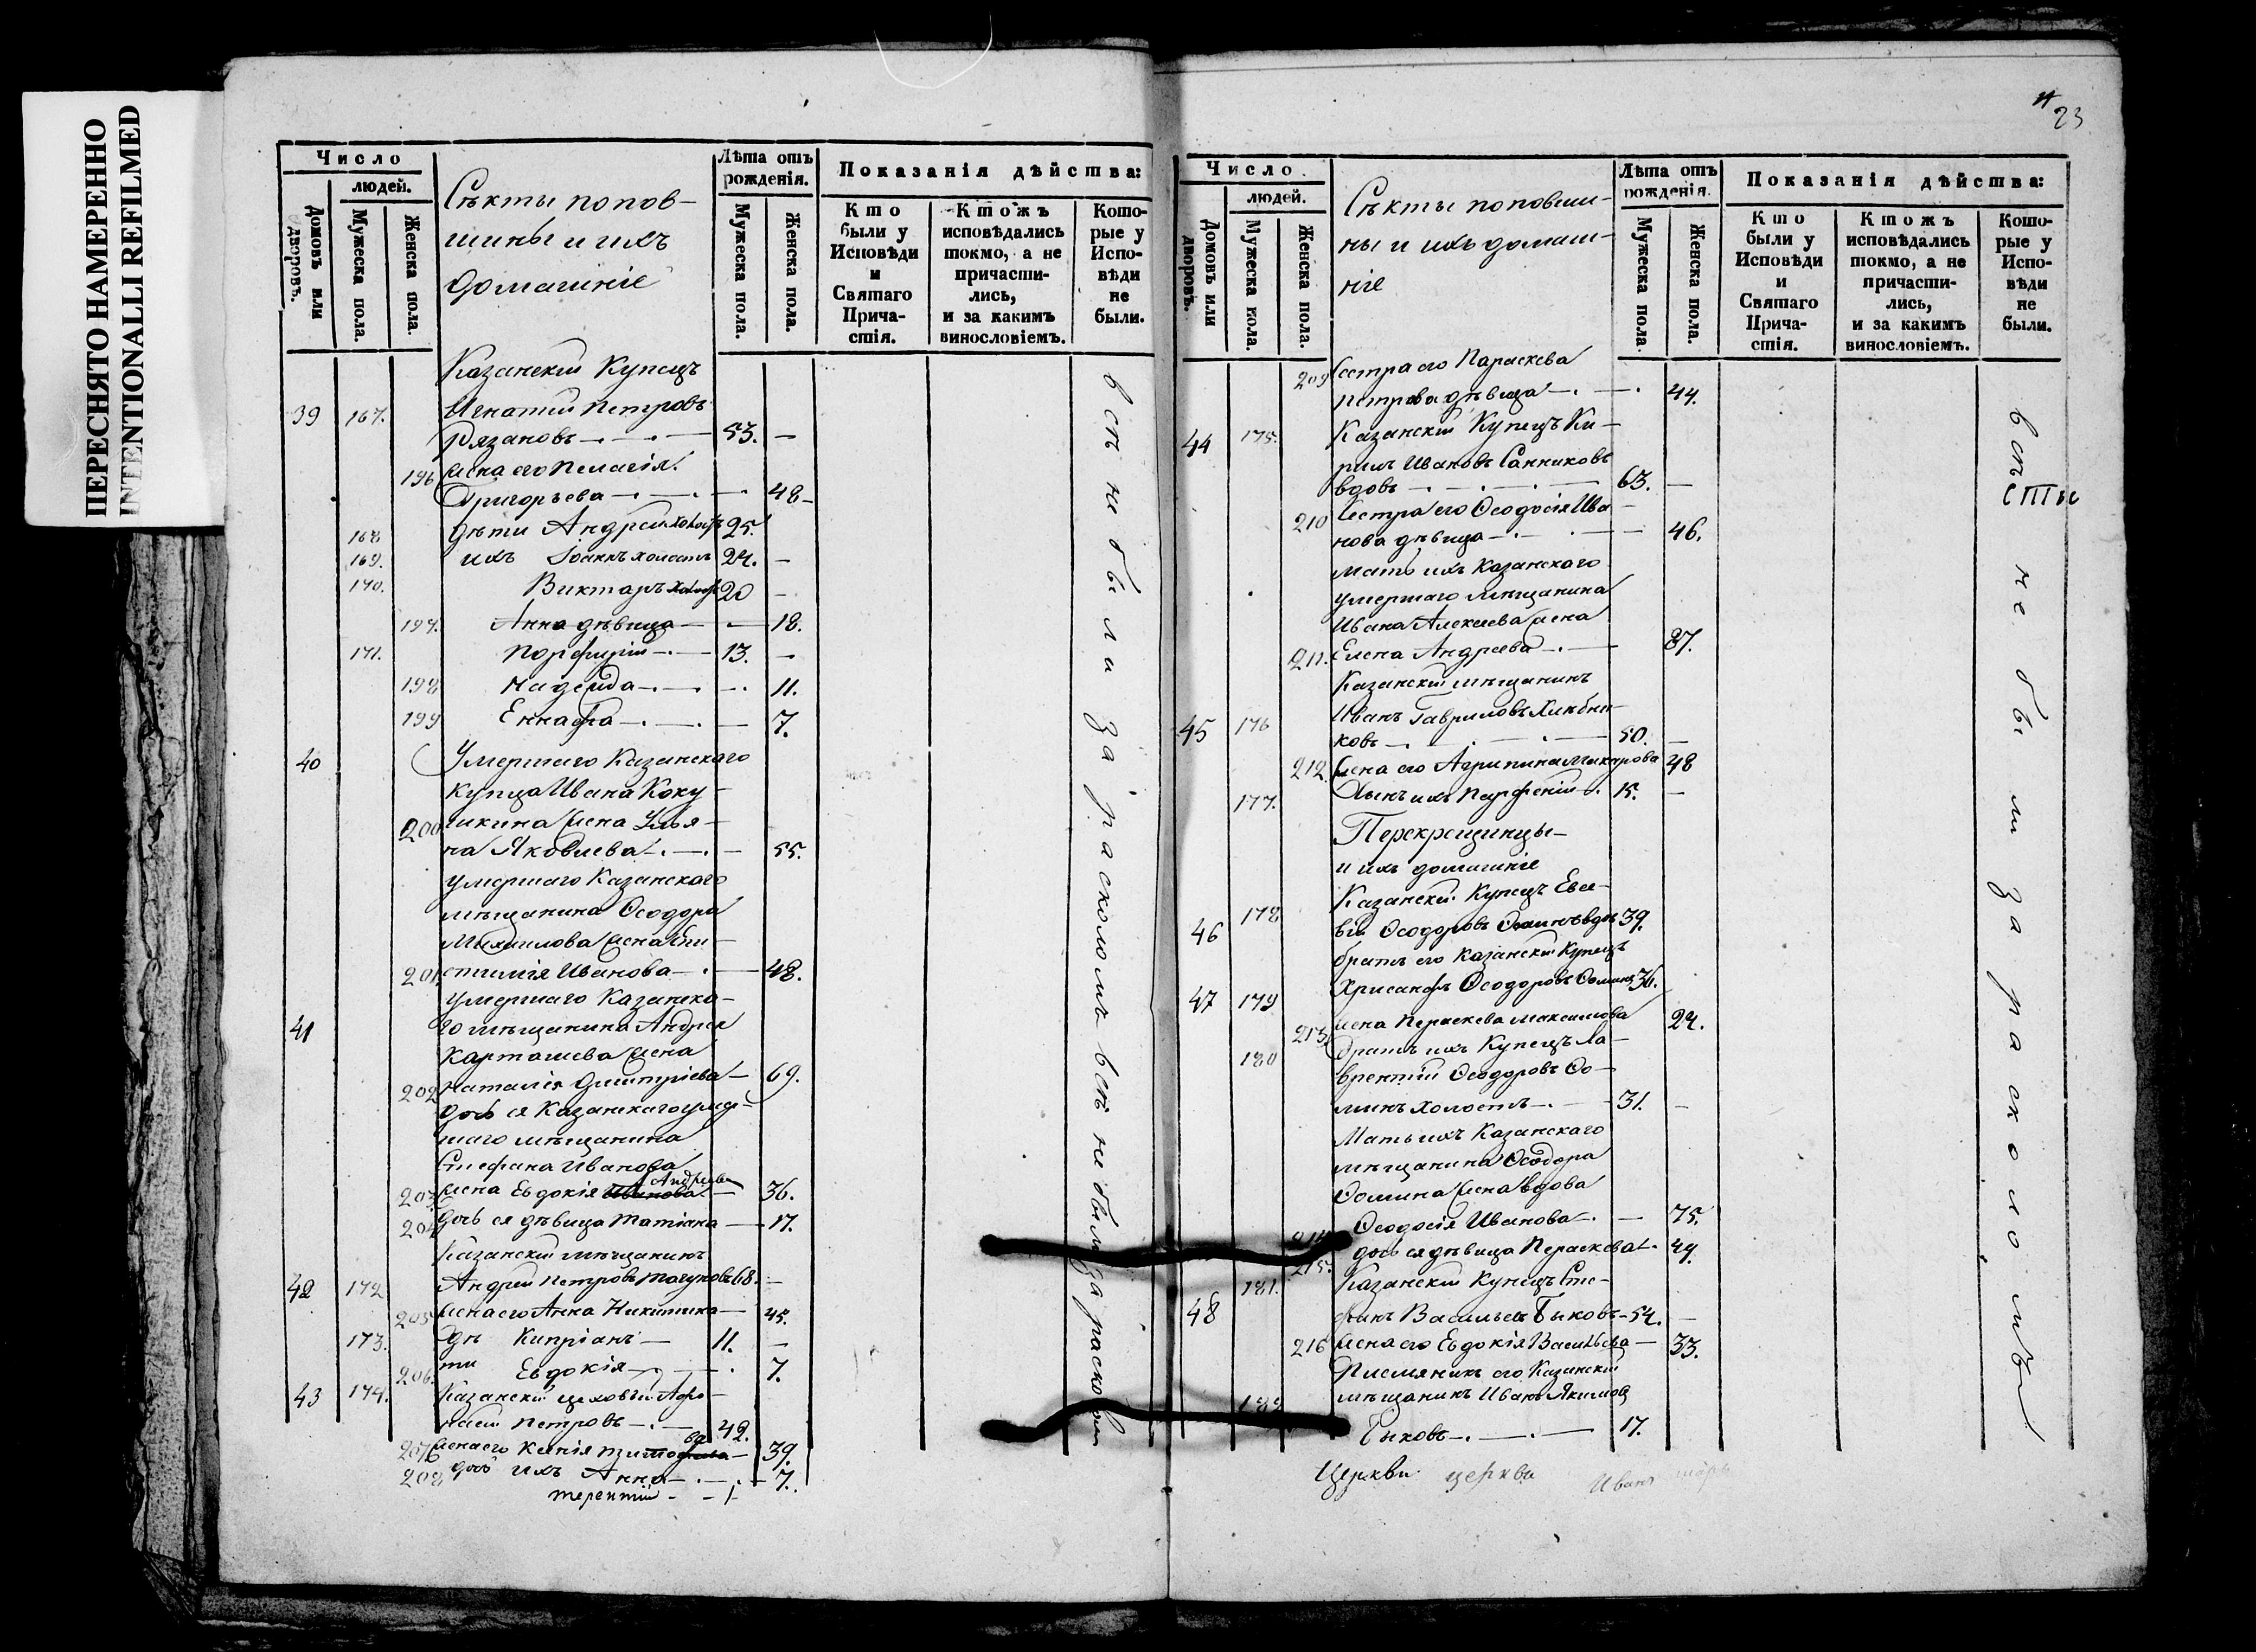 ПЕРЕСНЯТО НАМЕРЕННО
INTENTIONALLI REFILMED
Число
людей.
Домовъ или дворовъ.
Мужеска пола.
Женска пола.
Секты попов-
шины и ихъ
домашніе
Лѣта отъ рожденія.
Мужеска пола.
Женска пола.
Показанія дѣйства:
Кто были у Исповѣди и Святаго Причастія.
Ктожъ исповѣдались токмо, а не причастились, и за какимъ винословіемъ.
Которые у Исповѣди не были.
Казанскій Купецъ
39 167. Игнатій Петровъ
Рязановъ 53. —
196 жена его Пелагія
Григорьева 48
168 дѣти Андрей холостъ 25.
169. ихъ Іоаннъ холостъ 24. —
170. Викторъ холостъ 20 —
197. Анна дѣвица 18.
171. Порфирій 13. —
198 Надежда 11.
199 Еннафа 7.
40 Умершаго Казанскаго
купца Ивана Коку-
200 шкина жена Улья-
на Яковлева 55.
умершаго Казанскаго
мѣщанина Ѳеодора
Михаилова жена Епи-
201. стимія Иванова 48.
умершаго Казанска-
41 го мѣщанина Андрея
Карташева жена
202 Наталія Дмитріева 69.
дочь ея Казанскаго умер-
шаго мѣщанина
Стефана Иванова
Андреева
203 жена Евдокія Иванова 36.
204 дочь ея дѣвица Татіана 17.
Казанскій мѣщанинъ
42 172 Андрей Петровъ 68. —
205 жена его Анна Никитина 45.
173. дѣ Кипріанъ 11. —
206. ти Евдокія 7.
43 174. Казанскій цеховый Афо-
насій Петровъ 42.
207 жена его Ксенія 39.
208 дочь ихъ Анна 7.
Терентій 1
всѣ не были за расколомъ всѣ не были за расколом
23
Число
людей.
Домовъ или дворовъ.
Мужеска пола.
Женска пола.
Секты поповши-
ны и ихъ домаш-
ніе
Лѣта отъ рожденія.
Мужеска пола.
Женска пола.
Показанія дѣйства:
Кто были у Исповѣди и Святаго Причастія.
Ктожъ исповѣдались токмо, а не причастились, и за какимъ винословіемъ.
Которые у Исповѣди не были.
209 Сестра его Параскева
Петрова дѣвица 44.
44 175. Казанскій Купецъ Ки-
рилъ Ивановъ Санниковъ
вдовъ 63. —
210 Сестра его Ѳеодосія Ива-
нова дѣвица 46.
мать ихъ Казанскаго
умершаго мѣщанина
Ивана Алексѣева жена
211. Елена Андреева 87.
Казанскій мѣщанинъ
45 176 Иванъ Гавриловъ Хлѣбни-
ковъ 50. —
212. жена его Агрипина 48
177. Сынъ ихъ Парфеній 15. —
Перекрещенцы
и ихъ домашніе
Казанскій Купецъ Евсе-
46 178 вій Ѳеодоровъ Ѳоминъ вдов 39.
братъ его Казанскій Купецъ
47 179 Хрисанфъ Ѳеодоровъ Ѳоминъ 36.
213. жена Параскева Максимова 24.
180 братъ ихъ Купецъ Ла-
врентій Ѳеодоровъ Ѳо-
минъ холостъ 31. —
Мать ихъ Казанскаго
мѣщанина Ѳеодора
Ѳомина жена вдова
214 Ѳеодосія Иванова 75.
215. дочь ея дѣвица Параскева 49.
181. Казанскій Купецъ Сте-
48 фанъ Васильевъ Быковъ 54. —
216 жена его Евдокія Васильева 33.
Племяникъ его Казанскій
182 мѣщанинъ Иванъ Якимовъ
Быковъ 17.
всѣ не были за расколомъ
Церкви церкви Иванъ